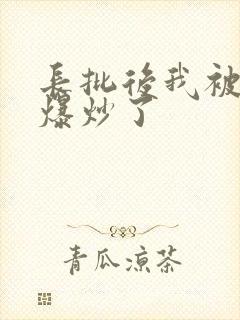 長批後我被
爆炒了
青瓜涼茶